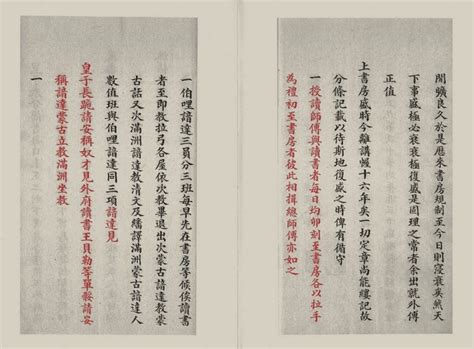 閒曠良久於是歷來書房規制至今日則寖衰矣然天
下事盛極必衰衰極復盛是固理之常者余出就外傅
正值
上書房盛時今離講幄十六年矣一切定章尚能縷記故
分條記載以待斯地復盛之時俾有循守
一授讀師傅與讀書者每日均卯刻至書房各以拉手
為禮初至書房者彼此相揖總師傅亦如之
一伯哩諳達三員分三班每早先在書房等候俟讀書
者至即教拉弓各屋依次教畢退出次蒙古諳達教蒙
古話又次滿洲諳達教清文及繙譯滿洲蒙古諳達人
數值班與伯哩諳達同三項諳達見
皇子長跪請安稱奴才見外府讀書王貝勒等單骸請安
稱諳達蒙古立教滿洲坐教
一